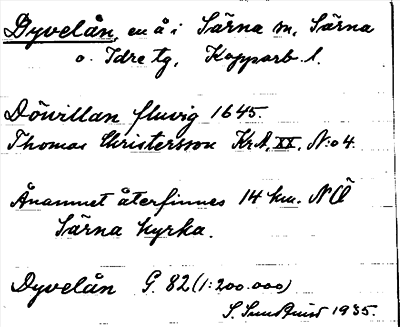 Dyvelån, en å i Särna sn, Särna
o. Idre tg, Kopparb. l.
Döwillan fluvig 1645.
Thomas Christersson KrA, XX, N:o 4.
Ånamnet återfinnes 14 km. NÖ
Särna kyrka.
Dyvelån G. 82 (1:200.000)
S. Sundkvist 1935.